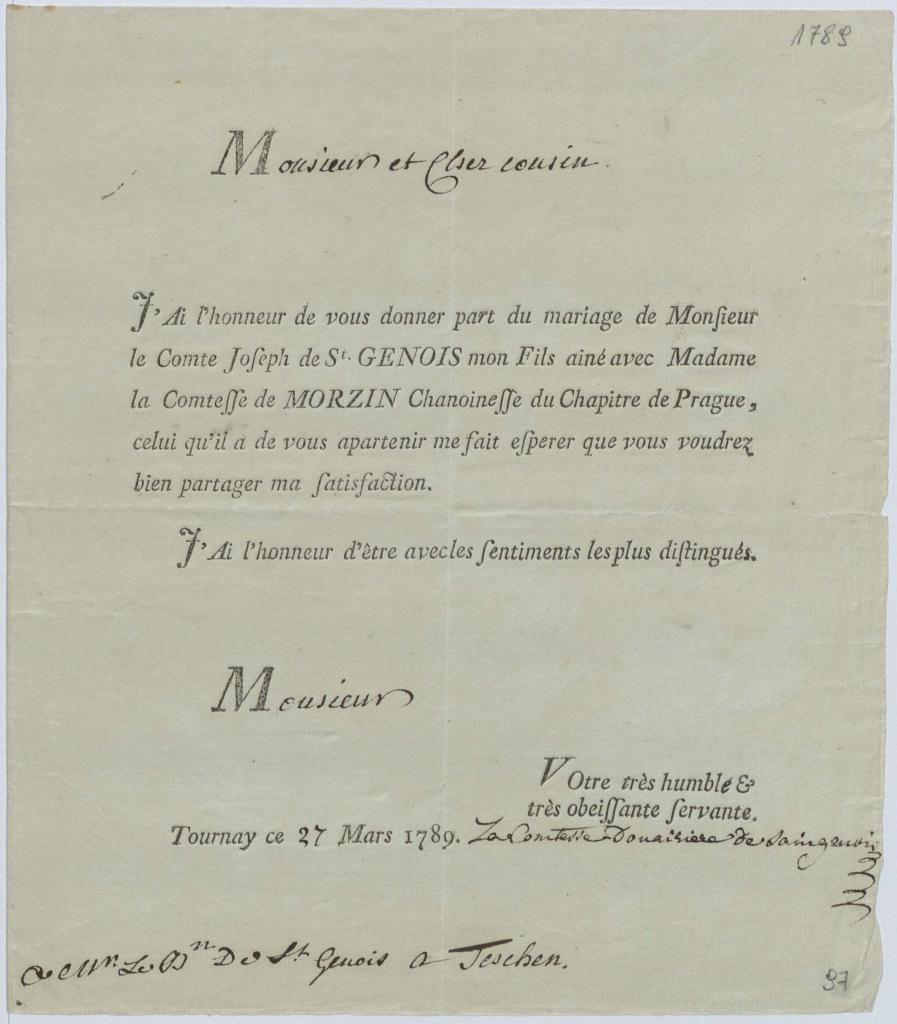 1789
Monsieur et Cher cousin.
J'Ai l'honneur de vous donner part du mariage de Monſieur
le Comte Joſeph de St. GENOIS mon Fils ainé avec Madame
la Comteſſe de MORZIN Chanoineſſe du Chapitre de Prague,
celui qu'il a de vous apartenir me fait eſperer que vous voudrez
bien partager ma ſatisfaction.
J'Ai l'honneur d'être avec les ſentiments les plus diſtingués.
Monsieur
VOtre très humble &
très obeiſſante ſervante.
Tournay ce 27 Mars 1789. La Comtesse Douairiere de Saingenois
a Mr. Le Bn De St Genois a Teschen.
97